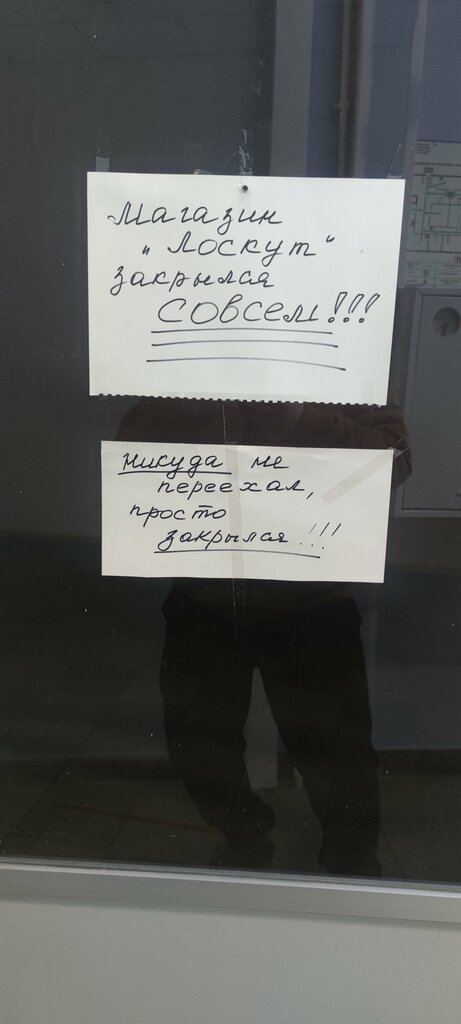 Магазин
„Лоскут“
закрылся
СОВСЕМ!!!
Никуда не
переехал,
просто
закрылся!!!